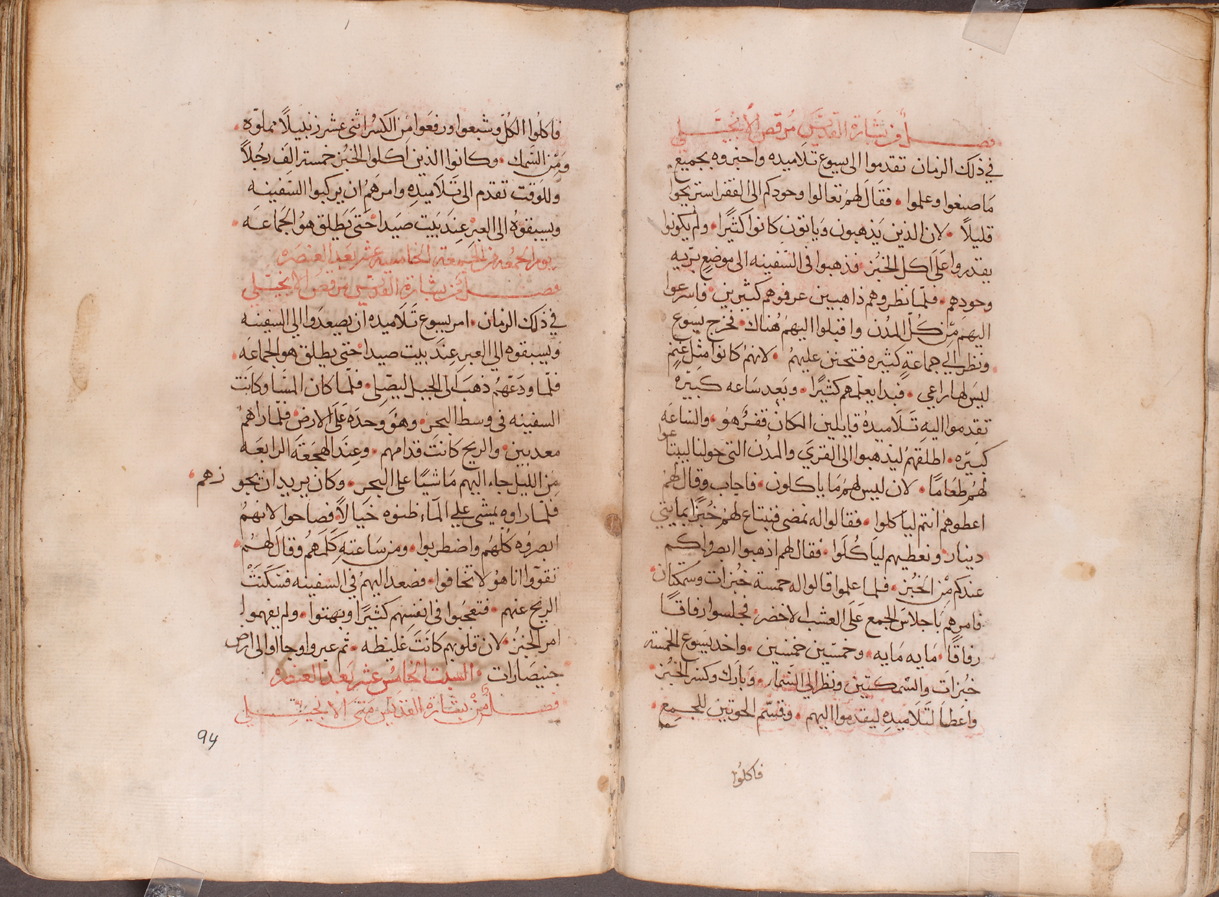 فصل من بشارة القديس مرقص الانجيلي
في ذلك الزمان تقدموا الى يسوع تلاميده واخبروه بجميع
ما صنعوا وعلموا • فقال لهم تعالوا وحودكم الى القفر استريحوا
قليلاً • لان الذين يذهبون وياتون كانوا كثيرًا • ولم يكونوا
يقدروا على اكل الخبز • فذهبوا في السفينه الى موضع بريه
وحودهم • فلما نظروهم ذاهبين عرفوهم كثيرين • واسرعوا
اليهم من كل المدن واقبلوا اليهم هناك • فخرج يسوع
ونظر الى جماعةٍ كثيره فتحنن عليهم • لانهم كانوا مثل غنم
ليس لها راعي • فبدا يعلمهم كثيرًا • وبعد ساعه كبيره
تقدموا اليه تلاميده قايلين المكان قفرٌ هو • والساعه
كبيره • اطلقهم ليذهبوا الى القري والمدن التي حولنا ليبتاعوا
لهم طعامًا • لان ليس لهم ما ياكلون • فاجاب وقال لهم
اعطوهم انتم لياكلوا • فقالوا له نمضي فنبتاع لهم خبزًا بمايتي
دينار ونعطيهم لياكلوا • فقال لهم اذهبوا ابصروا كم
عندكم من الخبز • فلما علموا قالوا له خمسة خبزات وسمكتان •
فامرهم باجلاس الجمع على العشب الاخضر • فجلسوا رفاقًا
رفاقًا • مايه مايه • وخمسين خمسين • واخد يسوع الخمسه
خبزات والسمكتين ونظر الى السماء • وبارك وكسر الخبز •
واعطا لتلاميده ليقدموا اليهم • وقسم الحوتين للجميع
فاكلوا
فاكلوا الكل وشبعوا ورفعوا من الكسر اثنى عشر زنبيلاً مملوّه •
ومن السمك • وكانوا الذين اكلوا الخبز خمسة الف رجلاً
وللوقت تقدم الى تلاميده وامرهم ان يركبوا السفينه
ويسبقوه الى العبر عند بيت صيدا حتى يطلق هو الجماعه •
يوم الجمعه من الجمعة الخامسه عشر بعد العنصره
فصل من بشارة القديس مرقص الانجيلي
في ذلك الزمان • امر يسوع تلاميده ان يصعدوا الى السفينه
ويسبقوه الى العبر عند بيت صيدا حتى يطلق هو الجماعه •
فلما ودعهم ذهب الى الجبل ليصلي • فلما كان المسا وكانت
السفينه في وسط البحر • وهو وحده على الارض • فلما راهم
معدبين • والريح كانت قدامهم • وعند الهجعة الرابعه
من الليل جاء اليهم ماشيًا على البحر • وكان يريد ان يجوزهم •
فلما راوه يمشي علي الماء ظنوه خيالاً • فصاحوا لانهم
ابصروه كلهم واضطربوا • ومن ساعته كلمهم وقال لهم •
تقووا انا هو لا تخافوا • فصعد اليهم في السفينه فسكنت
الريح عنهم • فتعجبوا في انفسهم كثيرًا وبهتوا • ولم يفهموا
امر الخبز • لان قلوبهم كانت غليظه • ثم عبروا وجاوا الى ارض
جنيصارات • السبت الخامس عشر بعد العنصره
فصل من بشارة القديس متى الانجيلي
94